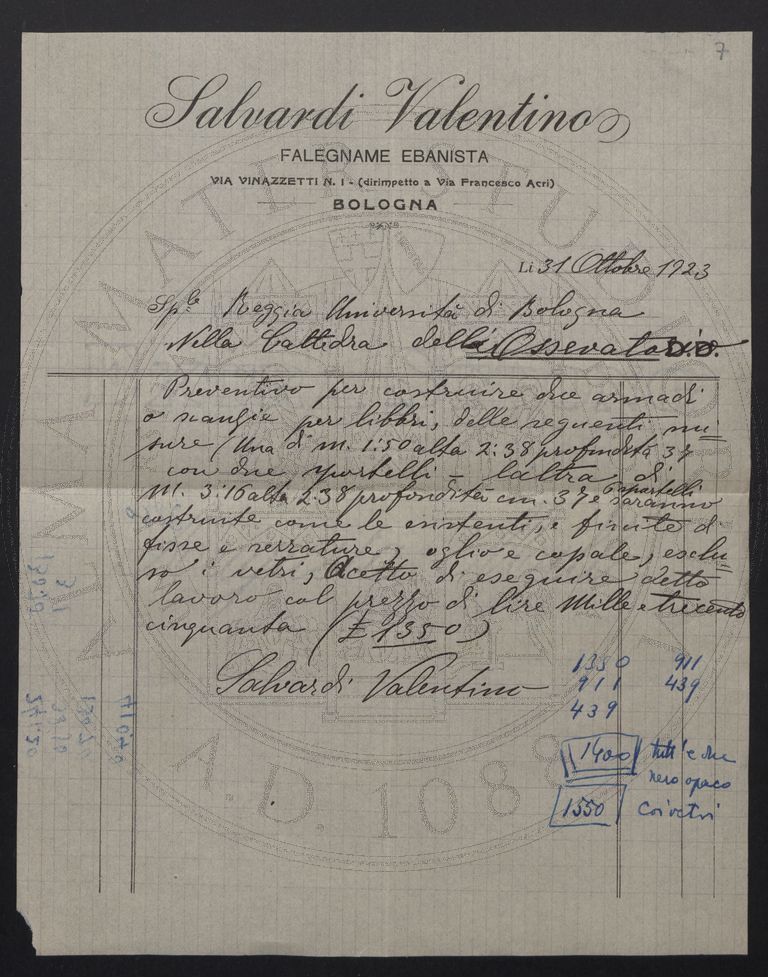 7
Salvardi Valentino
FALEGNAME EBANISTA
VIA VINAZZETTI N. 1 - (dirimpetto a Via Francesco Acri)
BOLOGNA
Li 31 Ottobre 1923
Sple Reggia Università di Bologna
Nella Cattedra della Ossevatorio.
Preventivo per costruire due armadi
o scansie per libbri, delle seguenti mi=
sure (Una di m. 1:50 alta 2:38 profondità 37
con due sportelli = l'altra di
M. 3:16 alta 2:38 profondità cm. 37 e 6 sportelli saranno
costruite come le esistenti, e finite di
fisse e serrature, oglio e copale, esclu=
so i vetri, Acetto di eseguire detto
lavoro col prezzo di lire Mille e trecento
cinquanta (£ 1350)
Salvardi Valentino
1350 911
911 439
439
1400 tutt'e due
nero opaco
1550 Coi vetri
ALMA MATER STUDIORUM
A.D. 1088